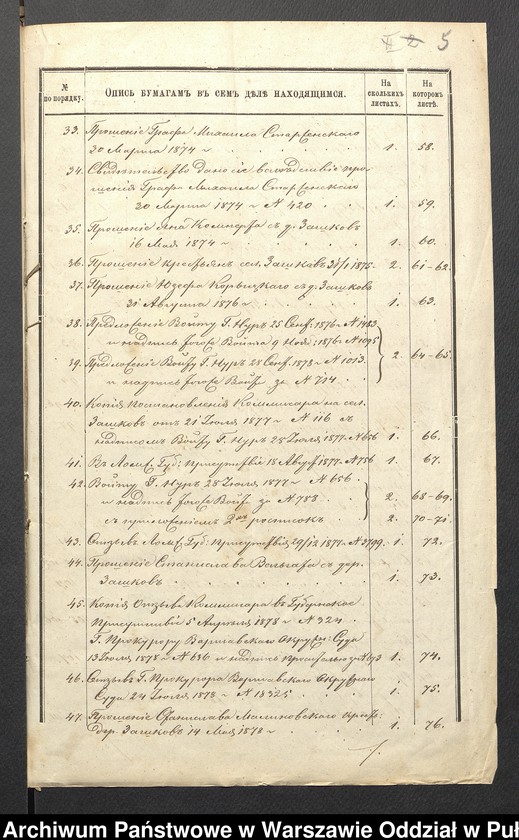 5
№ по порядку.
Опись бумагамъ въ семъ дѣлѣ находящимся.
На сколькихъ листахъ.
На которомъ листѣ.
33. Прошеніе Графа Михаила Старженскаго
20 Марта 1874 г. 1. 58.
34. Свидѣтельство данное вслѣдствіе про-
шенія Графа Михаила Старженскаго
20 Марта 1874 г. N 420 1. 59.
35. Прошеніе Яна съ д. Зашковъ
16 Мая 1874 г. 1. 60.
36. Прошеніе крестьянъ сел. Зашковъ 31/1 1875. 2. 61-62.
37. Прошеніе Юзефа съ д. Зашковъ
31 Августа 1876 г. 1. 63.
38. Предложеніе Войту Г. Нуръ 25 Сент. 1876 г. N 1483
и надпись Войта 9 Нояб. 1876 г. N 1095
39. Предложеніе Войту Г. Нуръ 28 Сент. 1878 г. N 1013. 2. 64-65.
и надпись Войта за N 714
40. Копія Постановленія Коммисара на сел.
Зашковъ отъ 21 Іюля 1877 г. N 116 съ
надписью Войту Г. Нуръ 28 Іюля 1877 г. N 656 1. 66.
41. Въ Губ: Присутствіе 18 Авг. 1877 г. N 756 1. 67.
42. Войту Г. Нуръ 28 Іюля 1877 г. N 656
и надпись Войта за N 783 2. 68-69.
съ приложеніемъ 2хъ росписокъ 2. 70-71.
43. Отзывъ Губ: Присутствія 29/12 1877 г. N 3799. 1. 72.
44. Прошеніе Станислава съ дер.
Зашковъ 1. 73.
45. Копія Отзыва Коммисара въ Губернское
Присутствіе 5 Апрѣля 1878 г. N 324
Г. Прокурору Варшавскаго Окружн: Суда
13 Іюля 1878 г. N 686 и надпись 1. 74.
46. Отзывъ Г. Прокурора Варшавскаго Окружнаго
Суда 24 Іюля 1878 г. N 18325 1. 75.
47. Прошеніе Станислава Малиновскаго
дер. Зашковъ 14 Мая 1878 г. 1. 76.
Archiwum Państwowe w Warszawie Oddział w Puł